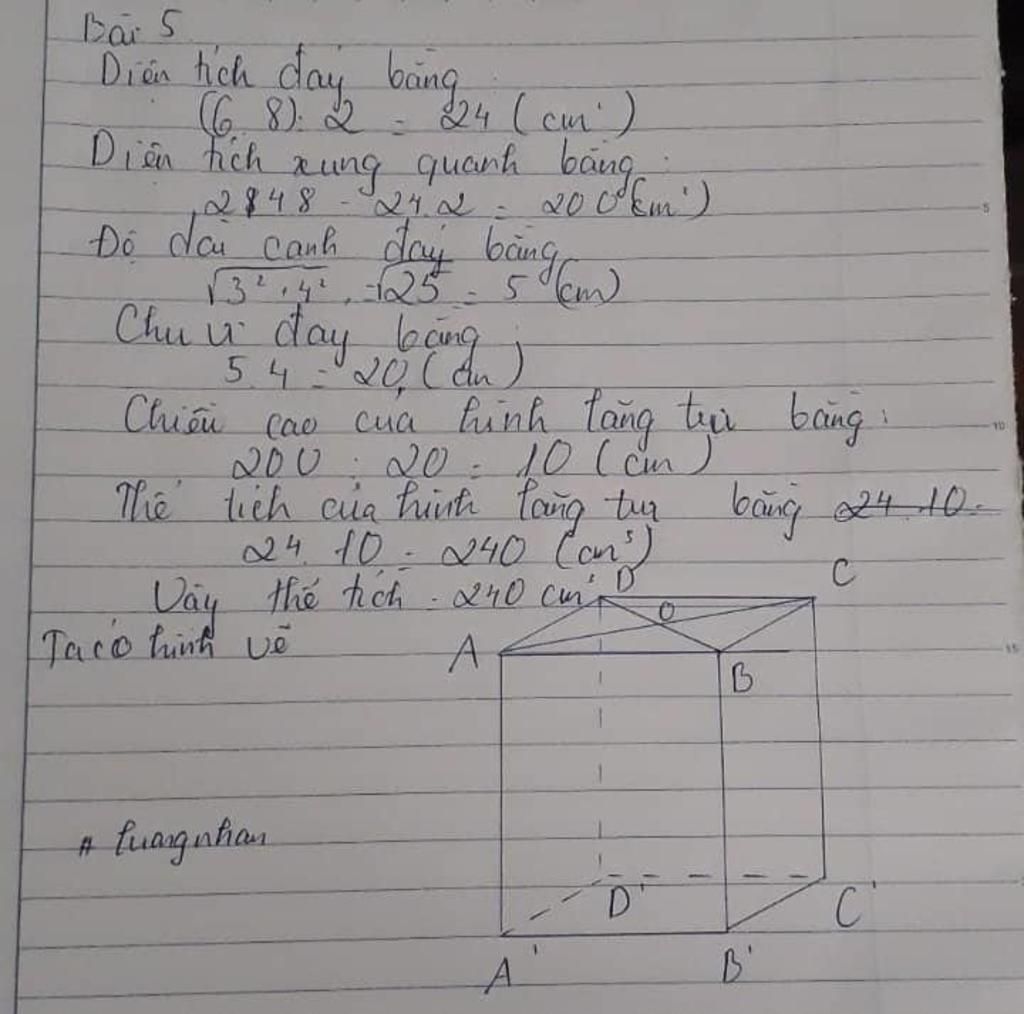 Bài 5
Diện tích đáy bằng:
(6.8):2 = 24 (cm²)
Diện tích xung quanh bằng:
248 - 24.2 = 200 (cm²)
Độ dài cạnh đáy bằng
√3²+4² = √25 = 5 (cm)
Chu vi đáy bằng:
5.4 = 20 (cm)
Chiều cao của hình lăng trụ bằng:
200 : 20 = 10 (cm)
Thể tích của hình lăng trụ bằng 24.10
24.10 = 240 (cm³)
Vậy thể tích = 240 cm³
Ta có hình vẽ
D
C
O
A
B
# tuangnhan
D'
C'
A'
B'